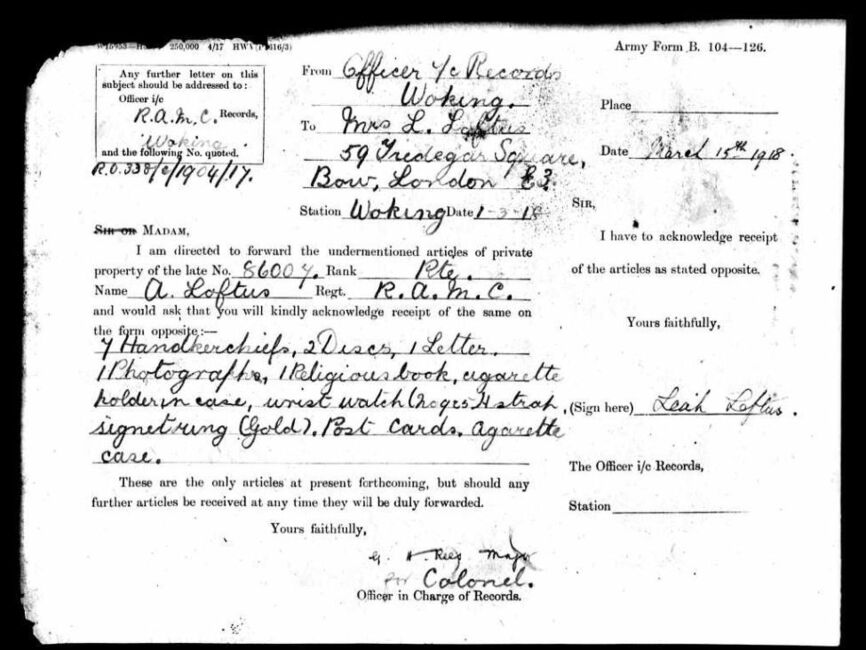 250,000 4/17
Army Form B. 104—126.
Any further letter on this
subject should be addressed to:
Officer i/c
R.A.M.C. Records,
Woking.
and the following No. quoted.
R.O.338/E/1904/17.
From Officer i/c Records
Woking.
To Mrs L. Loftus
59 Tredegar Square,
Bow, London E3.
Station Woking Date 1-3-18
Sir or Madam,
I am directed to forward the undermentioned articles of private
property of the late No. 86007. Rank Pte.
Name A. Loftus Regt. R.A.M.C.
and would ask that you will kindly acknowledge receipt of the same on
the form opposite:—
7 Handkerchiefs, 2 Discs, 1 Letter.
1 Photographs, 1 Religious book, cigarette
holder in case, wrist watch strap,
signet ring (Gold). Post Cards. Cigarette
case.
These are the only articles at present forthcoming, but should any
further articles be received at any time they will be duly forwarded.
Yours faithfully,
Major
for Colonel.
Officer in Charge of Records.
Place
Date March 15th 1918.
Sir,
I have to acknowledge receipt
of the articles as stated opposite.
Yours faithfully,
(Sign here) Leah Loftus.
The Officer i/c Records,
Station